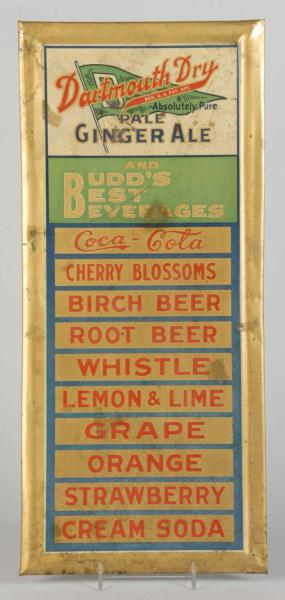 Dartmouth Dry
REG. U.S. PAT. OFF.
Absolutely Pure
PALE
GINGER ALE
AND
BUDD'S
BEST
BEVERAGES
Coca-Cola
CHERRY BLOSSOMS
BIRCH BEER
ROOT BEER
WHISTLE
LEMON & LIME
GRAPE
ORANGE
STRAWBERRY
CREAM SODA